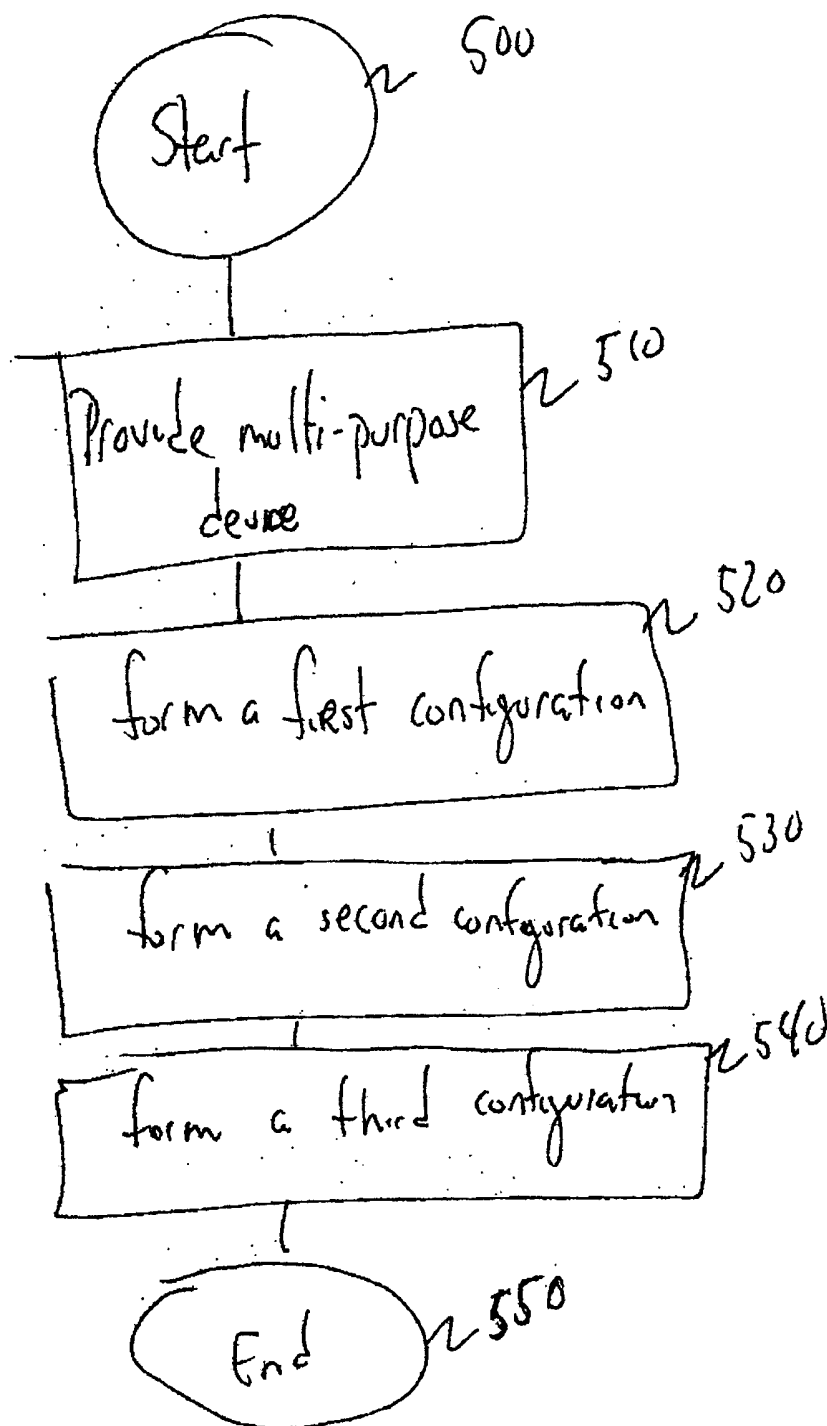 500
Start
510
Provide multi-purpose
device
520
form a first configuration
530
form a second configuration
540
form a third configuration
550
End